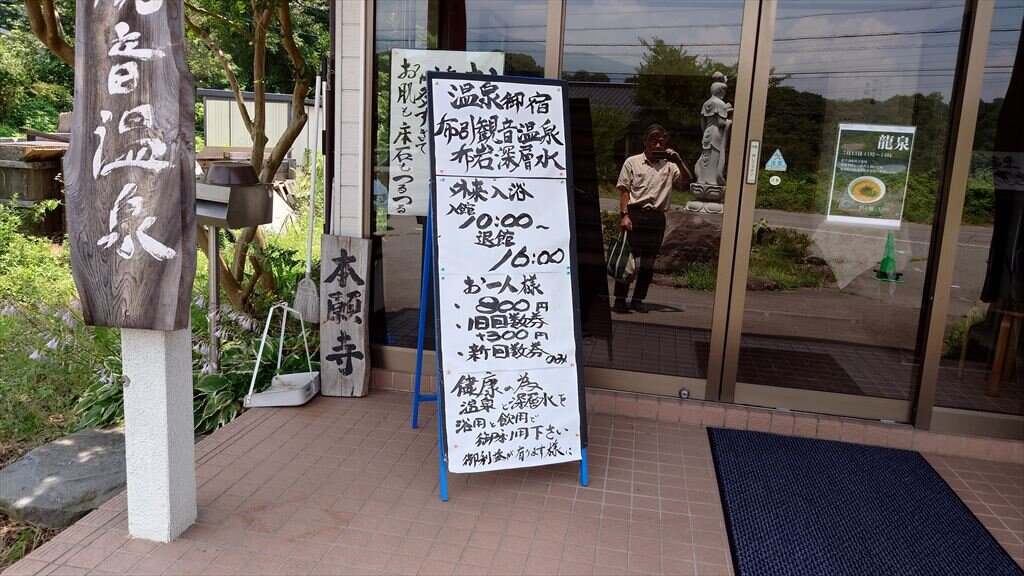 音温泉
本願寺
お肌も床石もつるつる
温泉御宿
布引観音温泉
布岩深層水
外来入浴
入館
10:00～
退館
16:00
お一人様
・800円
・旧回数券
+300円
・新回数券のみ
健康の為
温泉と深層水を
浴用と飲用で
御利用下さい
御利益が有ります様に
龍泉